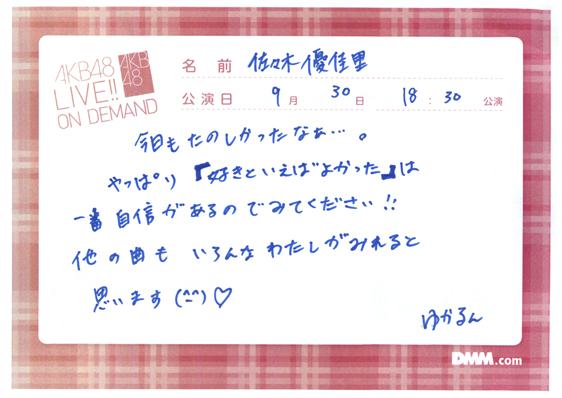 AKB48
LIVE!!
ON DEMAND
AKB
48
名前 佐々木優佳里
公演日 9月 30日 18:30 公演
今日もたのしかったなぁ…。
やっぱり『好きといえばよかった』は
一番自信があるのでみてください!!
他の曲も いろんなわたしがみれると
思います (^^)♡
ゆかるん
DMM.com